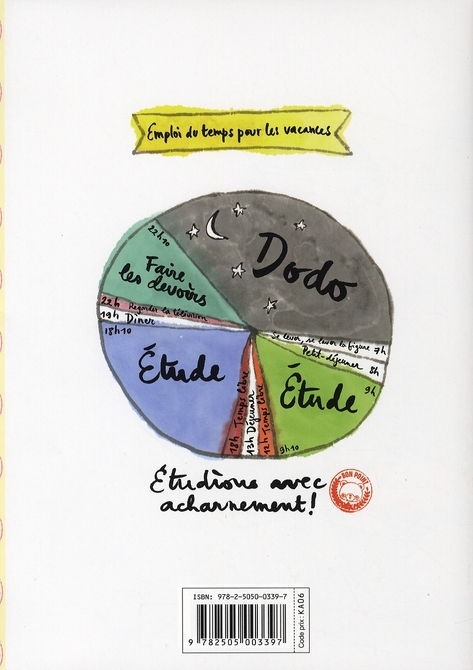 Emploi du temps pour les vacances
22h10
Dodo
Faire
les devoirs
22h Regarder la télévision
19h Dîner
18h10
Se lever, se laver la figure 7h
Petit-déjeuner 8h
9h
Étude
Étude
18h Temps libre
13h Déjeuner
12h Temps libre
9h10
Étudions avec
acharnement!
BON POINT
ISBN: 978-2-5050-0339-7
9 782505 003397
Code prix: KA06